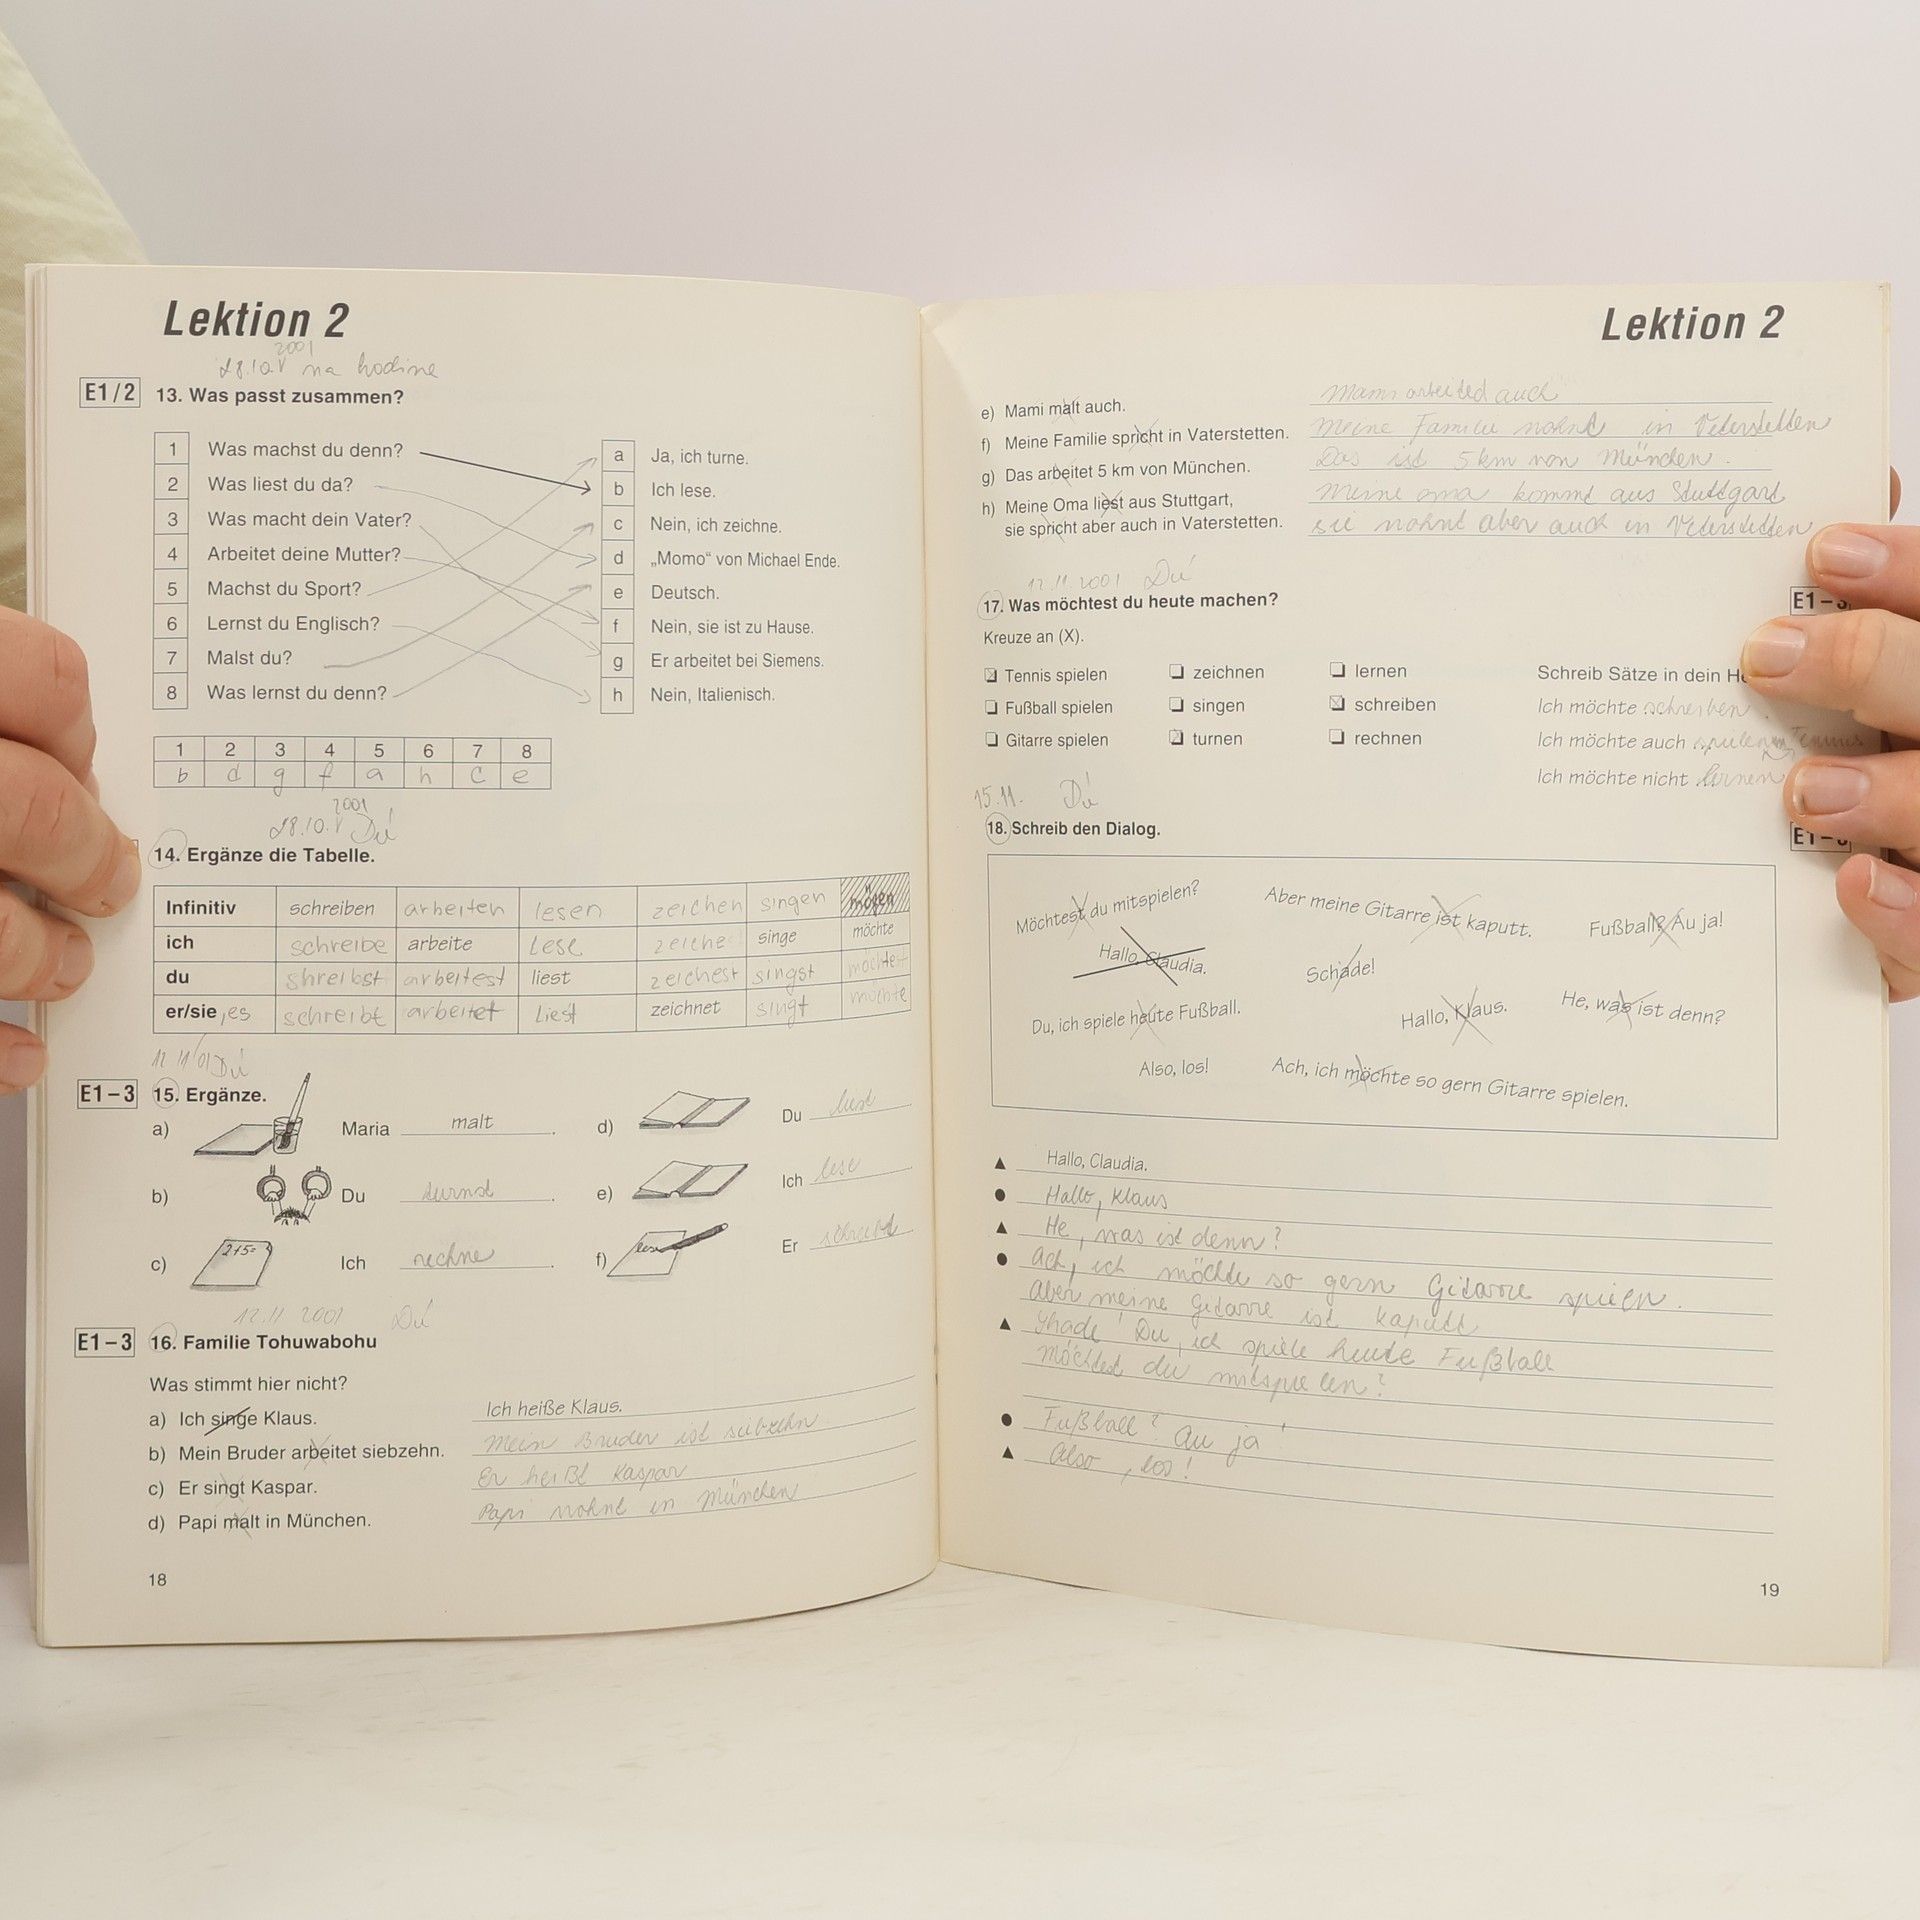 Lektion 2
2001
28.10. na hodine
E1/2 13. Was passt zusammen?
1 Was machst du denn? a Ja, ich turne.
2 Was liest du da? b Ich lese.
3 Was macht dein Vater? c Nein, ich zeichne.
4 Arbeitet deine Mutter? d „Momo“ von Michael Ende.
5 Machst du Sport? e Deutsch.
6 Lernst du Englisch? f Nein, sie ist zu Hause.
7 Malst du? g Er arbeitet bei Siemens.
8 Was lernst du denn? h Nein, Italienisch.
1 2 3 4 5 6 7 8
b d g f a h c e
2001
28.10. Dú
14. Ergänze die Tabelle.
Infinitiv schreiben arbeiten lesen zeichen singen mögen
ich schreibe arbeite lese zeiche singe möchte
du shreibst arbeitest liest zeichest singst möchtest
er/sie, es schreibt arbeitet liest zeichnet singt möchte
12 11 01 Dú
E1–3 15. Ergänze.
a) Maria malt . d) Du liest
b) Du turnst . e) Ich lese
c) 2+5= Ich rechne . f) Er schreibt
12.11 2001 Dú
E1–3 16. Familie Tohuwabohu
Was stimmt hier nicht?
a) Ich singe Klaus. Ich heiße Klaus.
b) Mein Bruder arbeitet siebzehn. Mein Bruder ist siebzehn
c) Er singt Kaspar. Er heißt Kaspar
d) Papi malt in München. Papi wohnt in München
18
Lektion 2
e) Mami malt auch. Mami arbeited auch
f) Meine Familie spricht in Vaterstetten. Meine Familie wohnt in Veterstetten
g) Das arbeitet 5 km von München. Das ist 5 km von München.
h) Meine Oma liest aus Stuttgart, Meine oma kommt aus Stuttgart
sie spricht aber auch in Vaterstetten. sie wohnt aber auch in Veterstetten
12.11.2001 Dú
17. Was möchtest du heute machen? E1–3
Kreuze an (X).
Tennis spielen zeichnen lernen Schreib Sätze in dein
Fußball spielen singen schreiben Ich möchte schreiben.
Gitarre spielen turnen rechnen Ich möchte auch spielen Tennis
Ich möchte nicht lernen
15.11. Dú
18. Schreib den Dialog. E1–3
Möchtest du mitspielen? Aber meine Gitarre ist kaputt. Fußball? Au ja!
Hallo, Claudia. Schade!
Du, ich spiele heute Fußball. Hallo, Klaus. He, was ist denn?
Also, los! Ach, ich möchte so gern Gitarre spielen.
▲ Hallo, Claudia.
● Hallo, Klaus
▲ He, was ist denn?
● Ach, ich möchte so gern Gitarre spielen.
Aber meine Gitarre ist kaputt
▲ Shade! Du, ich spiele heute Fußball
möchtest du mitspielen?
● Fußball? Au ja!
▲ Also, los!
19